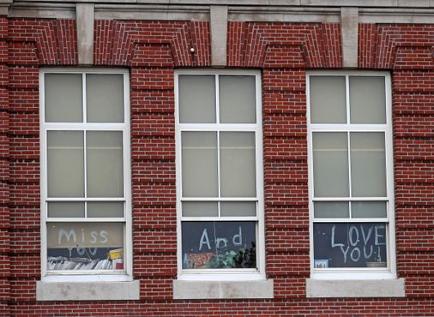 Miss
YOU
And
LOVE
YOU!